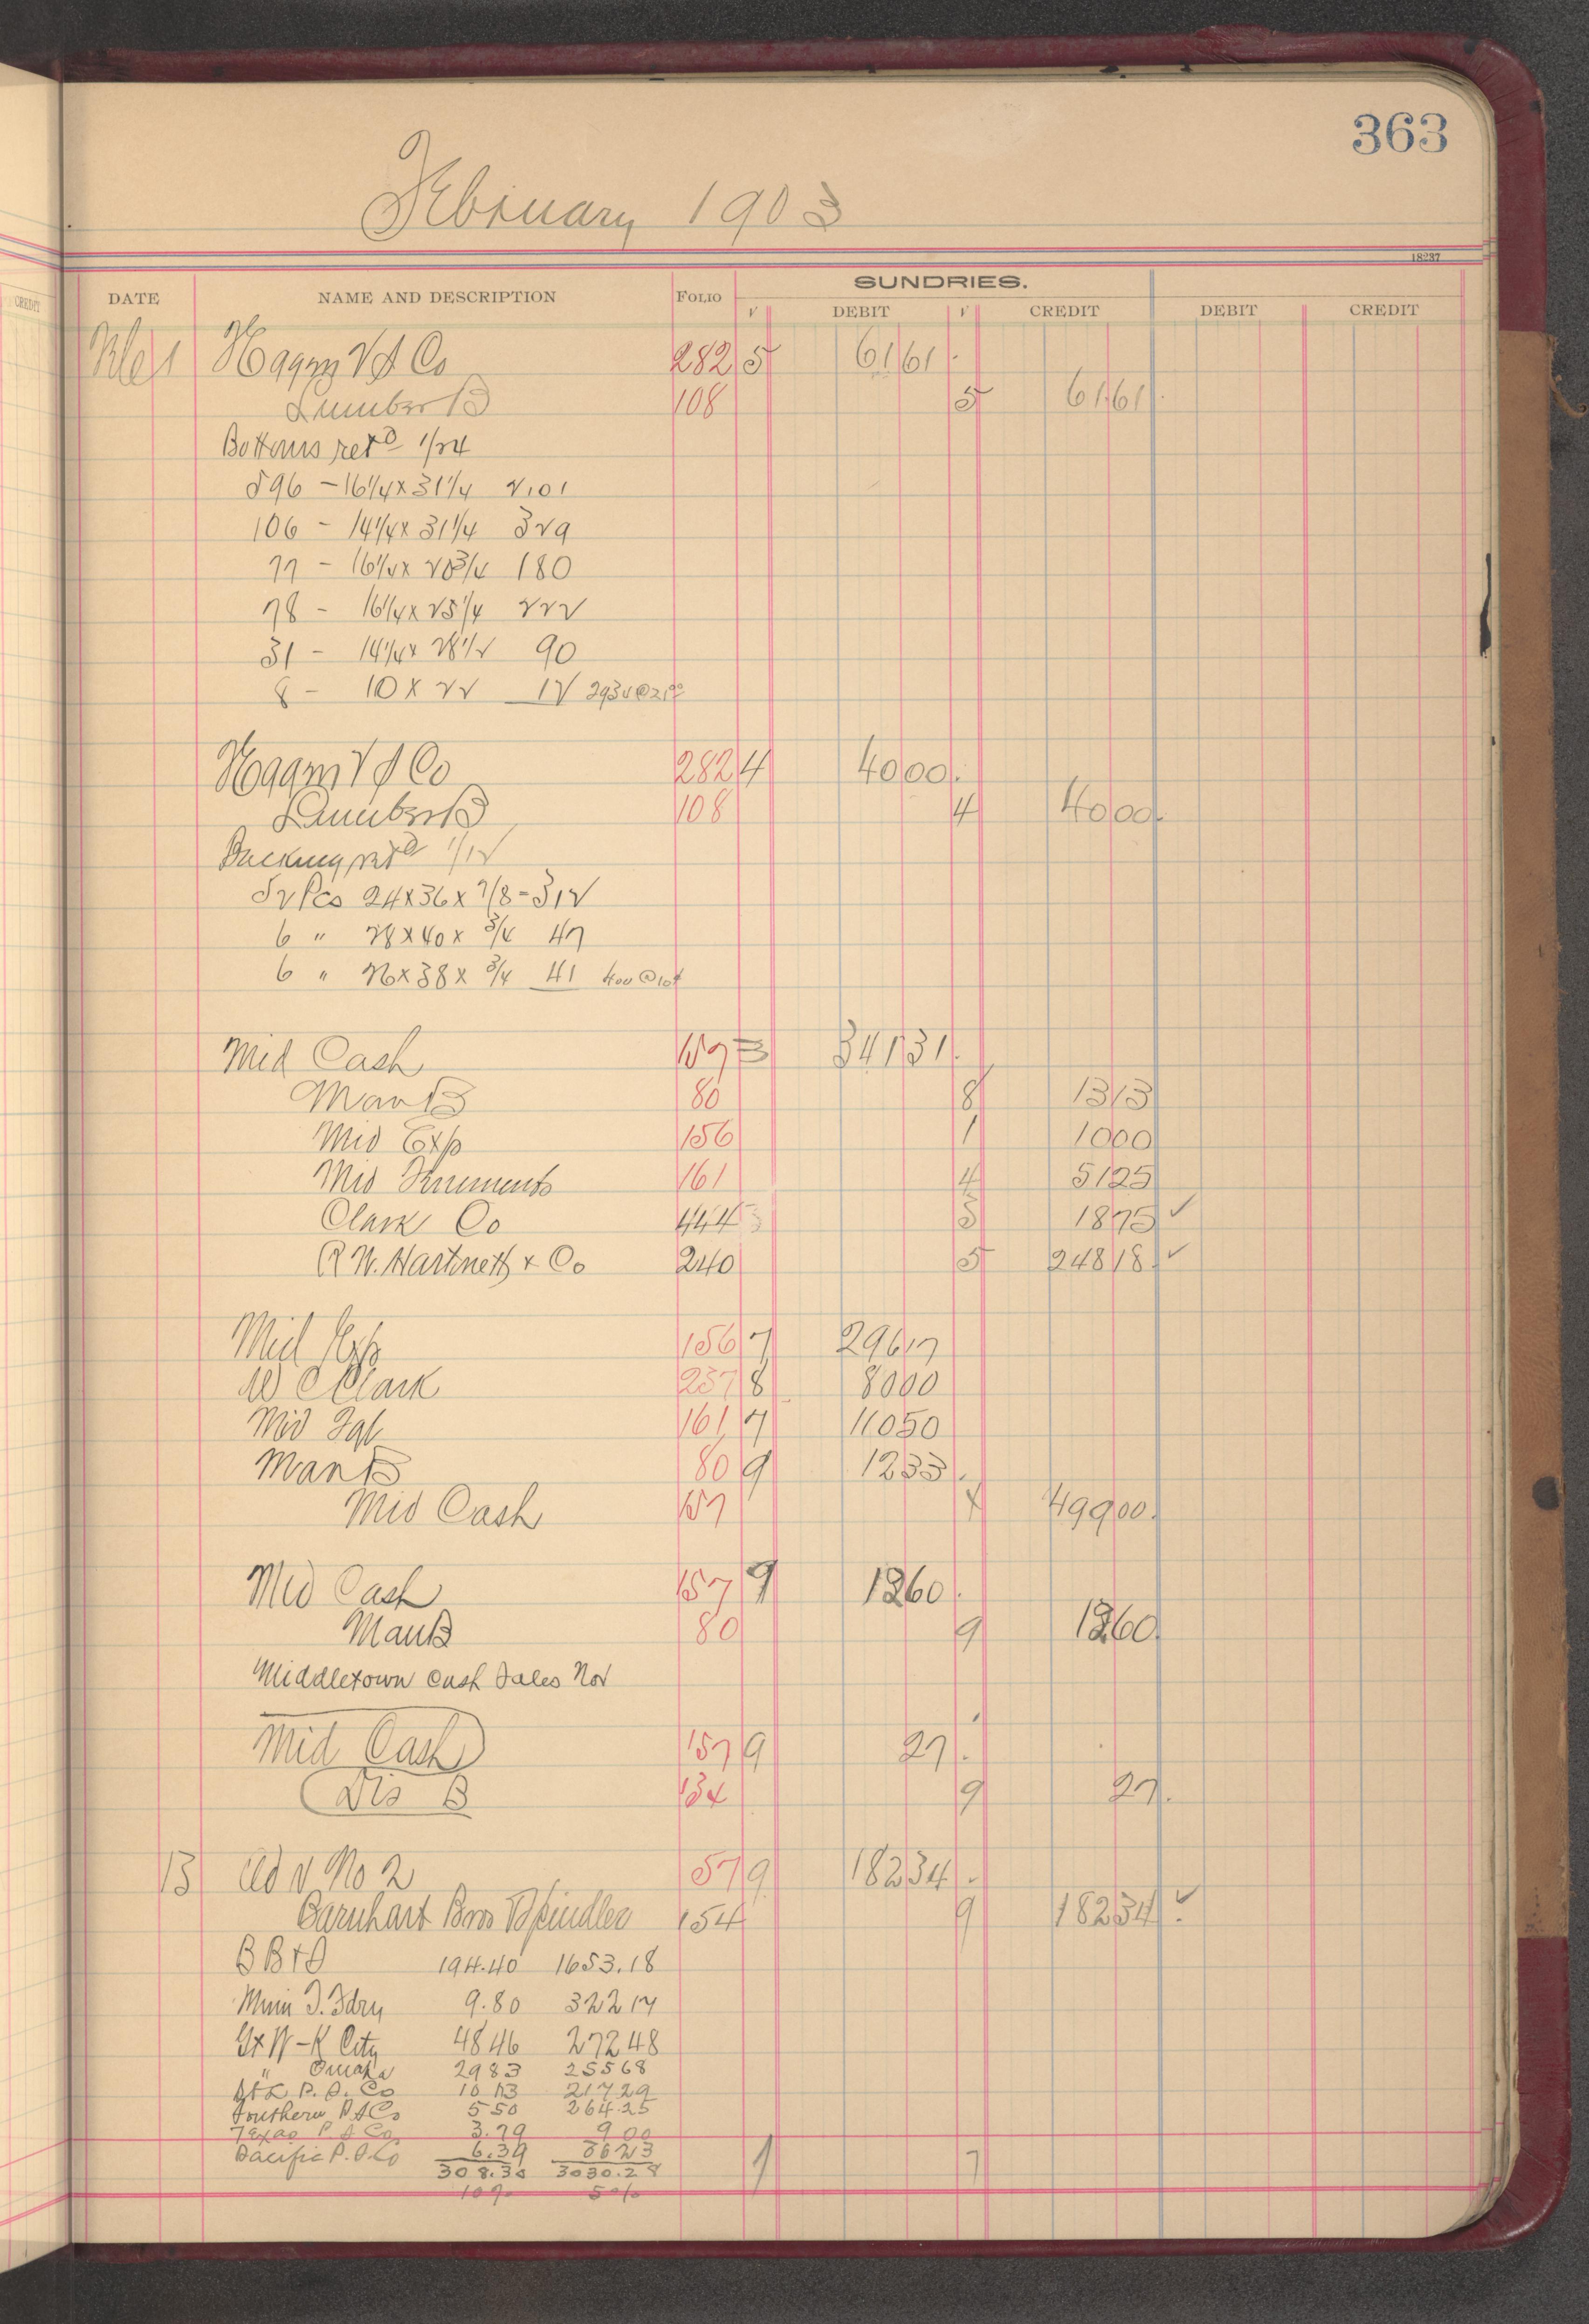 363
February 1903
18237
CREDIT
DATE NAME AND DESCRIPTION FOLIO SUNDRIES.
√ DEBIT √ CREDIT DEBIT CREDIT
Co 282 5 61 61
Lumber B 108 5 61 61
Bottoms retd 1/24
896 - 16 1/4 x 31 1/4 2101
106 - 14 1/4 x 31 1/4 329
77 - 16 1/4 x 20 3/4 180
78 - 16 1/4 x 25 1/4 222
31 - 14 1/4 x 28 1/2 90
8 - 10 x 22 12 2932 @ 21 00
Co 282 4 40 00
Lumber B 108 4 40 00
Backing retd 1/12
52 Pcs 24 x 36 x 7/8 = 312
6 " 28 x 40 x 3/4 47
6 " 26 x 38 x 3/4 41 400 @ 10¢
Mid Cash 157 3 341 31
Man B 80 8 13 13
Mid Exp 156 1 10 00
Mid 161 4 51 25
Clark Co 444 3 18 75 ✓
R W. Hartnett & Co 240 5 248 18 ✓
Mid Exp 156 7 296 17
W C Clark 237 8 80 00
Mid 161 7 110 50
Man B 80 9 12 33
Mid Cash 157 x 499 00
Mid Cash 157 9 12 60
Man B 80 9 12 60
Middletown Cash Sales Nov
Mid Cash 157 9 27
Dis B 134 9 27
13 Adv No 2 57 9 182 34
Barnhart Bros & Spindler 154 9 182 34 ✓
B B & S 194.40 1653.18
Minn T. Fdry 9.80 322 17
Gt W - K City 48 46 272 48
" Omaha 29 83 255 68
St L P. S. Co 10 13 217 29
Southern P S Co 5 50 264.25
Texas P S Co 3.79 9 00
Pacific P. S. Co 6.39 36 23
308.30 3030.28
10% 5%
1 7